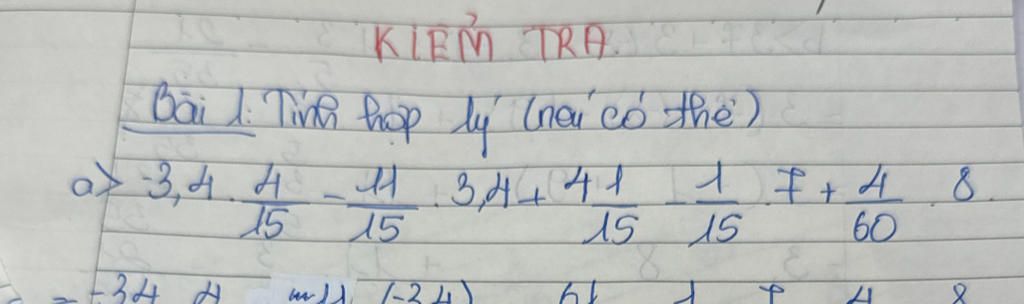 KIỂM TRA.
Bài 1: Tính hợp lý (nếu có thể)
a> -3,4 . 4/15 - 11/15 . 3,4 + 4 1/15 - 1/15 . 7 + 4/60 . 8